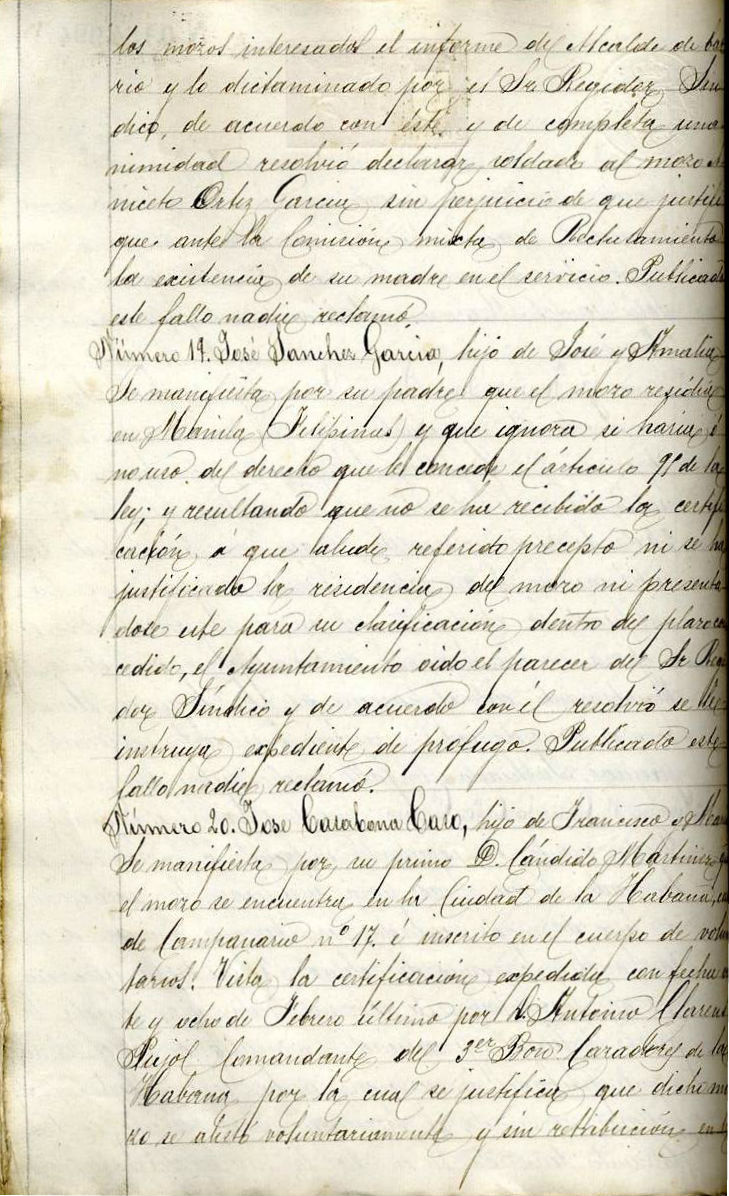 los mozos interesados el informe del Alcalde de bar
rio y lo dictaminado por el Sr. Regidor Sín
dico, de acuerdo con éste y de completa una
nimidad resolvió declarar soldado al mozo A
niceto Ortiz Garcia sin perjuicio de que justifi
que ante la Comisión mixta de Reclutamiento
la existencia de su madre en el servicio. Publicado
este fallo nadie reclamó.
Número 19. José Sanchez García, hijo de José y Amalia
Se manifiesta por su padre que el mozo residia
en Manila (Filipinas) y que ignora si haria ó
no uso del derecho que le concede el árticulo 95 de la
ley; y resultando que no se ha recibido la certifi
cación á que alude referido precepto ni se ha
justificado la residencia del mozo ni presentá
dose este para su clasificación dentro del plazo con
cedido, el Ayuntamiento oido el parecer del Sr. Regi
dor Síndico y de acuerdo con él resolvió se le
instruya expediente de prófugo. Publicado este
fallo nadie reclamó.
Número 20. Jose Carabona Caro, hijo de Francisco y
Se manifiesta por su primo D. Cándido Martinez q
el mozo se encuentra en la Ciudad de la Habana,
de Campanario nº 17. é inscrito en el cuerpo de volun
tarios. Vista la certificación expedida con fecha
te y ocho de Febrero último por D. Antonio Clarens
Pujol Comandante del 3er Bon Cazadores de la
Habana por la cual se justifica que dicho mo
zo se alistó voluntariamente y sin retribución en